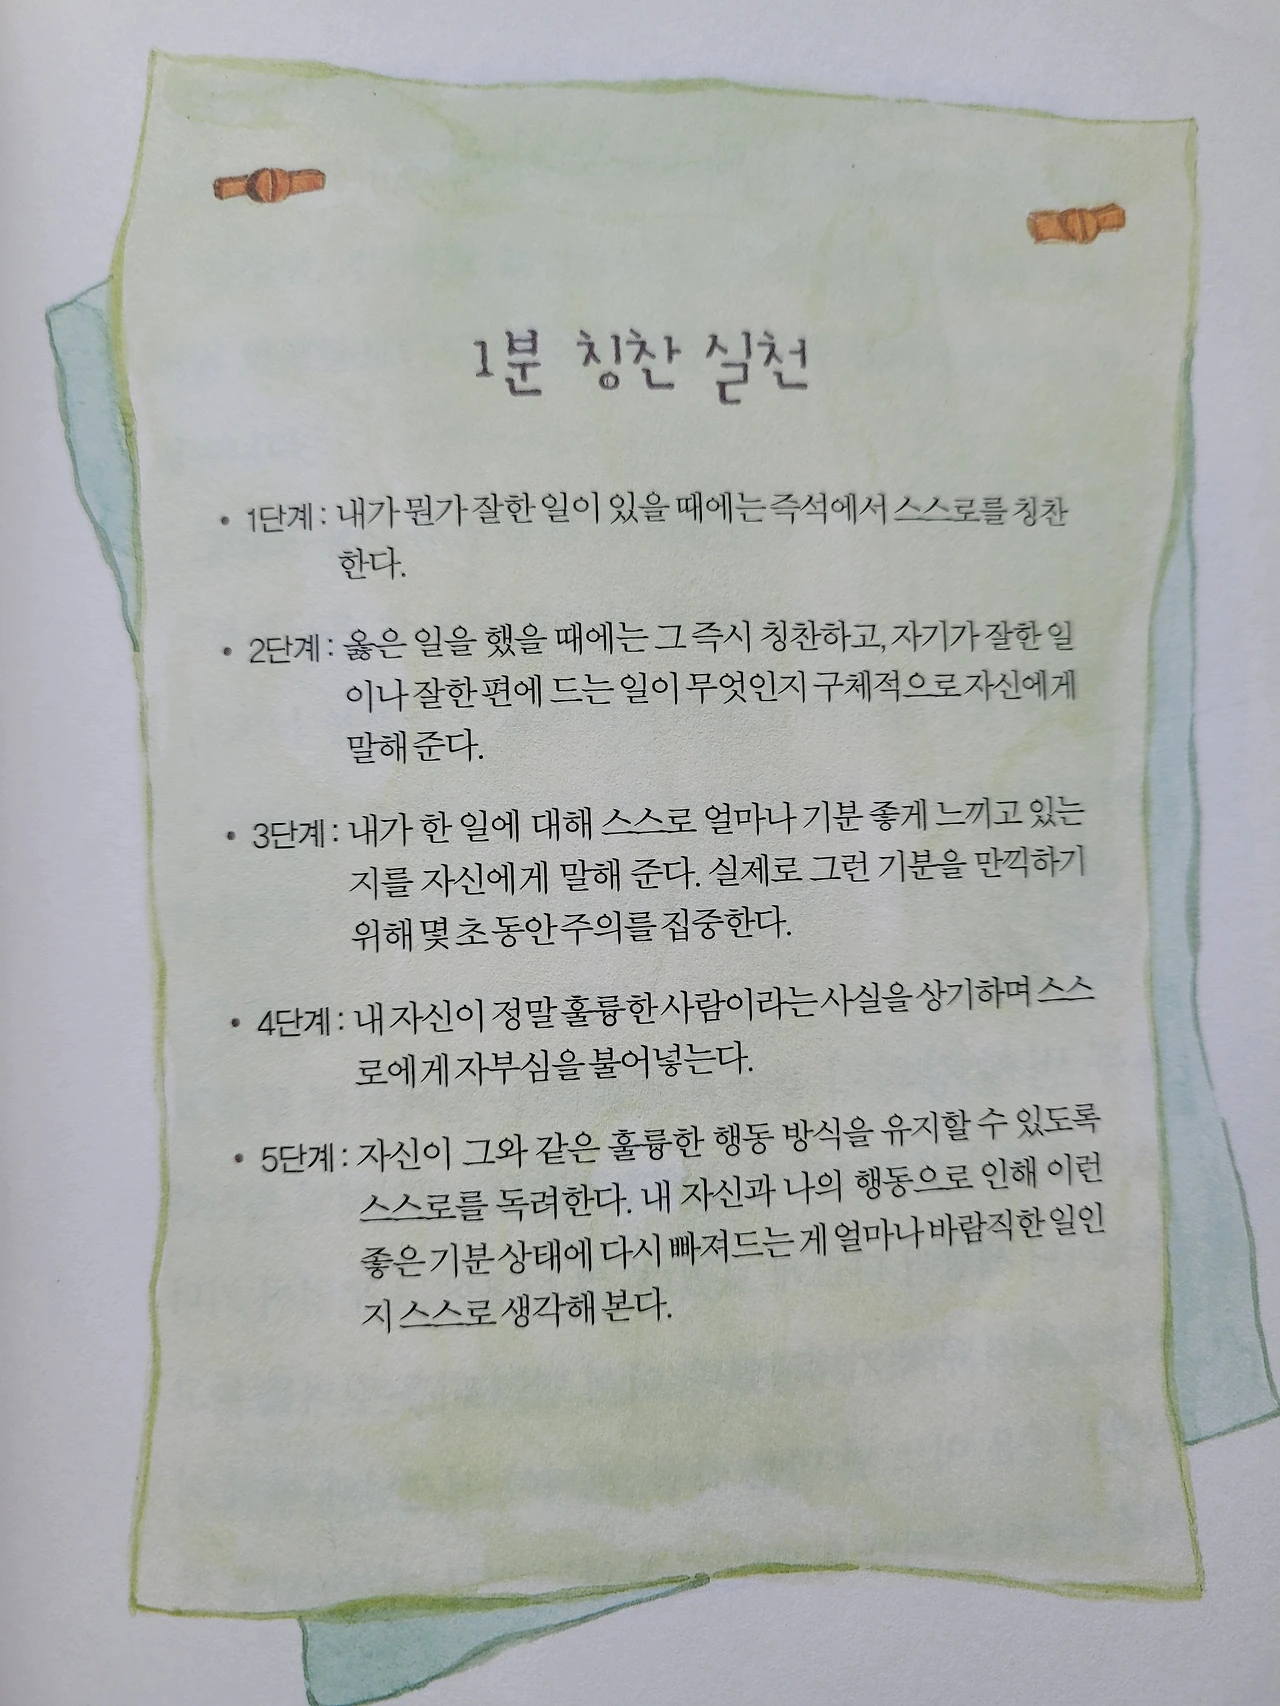 1분 칭찬 실천
• 1단계 : 내가 뭔가 잘한 일이 있을 때에는 즉석에서 스스로를 칭찬
한다.
• 2단계 : 옳은 일을 했을 때에는 그 즉시 칭찬하고, 자기가 잘한 일
이나 잘한 편에 드는 일이 무엇인지 구체적으로 자신에게
말해 준다.
• 3단계 : 내가 한 일에 대해 스스로 얼마나 기분 좋게 느끼고 있는
지를 자신에게 말해 준다. 실제로 그런 기분을 만끽하기
위해 몇 초 동안 주의를 집중한다.
• 4단계 : 내 자신이 정말 훌륭한 사람이라는 사실을 상기하며 스스
로에게 자부심을 불어넣는다.
• 5단계 : 자신이 그와 같은 훌륭한 행동 방식을 유지할 수 있도록
스스로를 독려한다. 내 자신과 나의 행동으로 인해 이런
좋은 기분 상태에 다시 빠져드는 게 얼마나 바람직한 일인
지 스스로 생각해 본다.